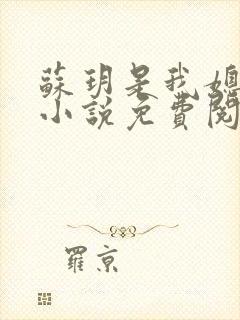 蘇玥是我媳
小說免費閱
羅京